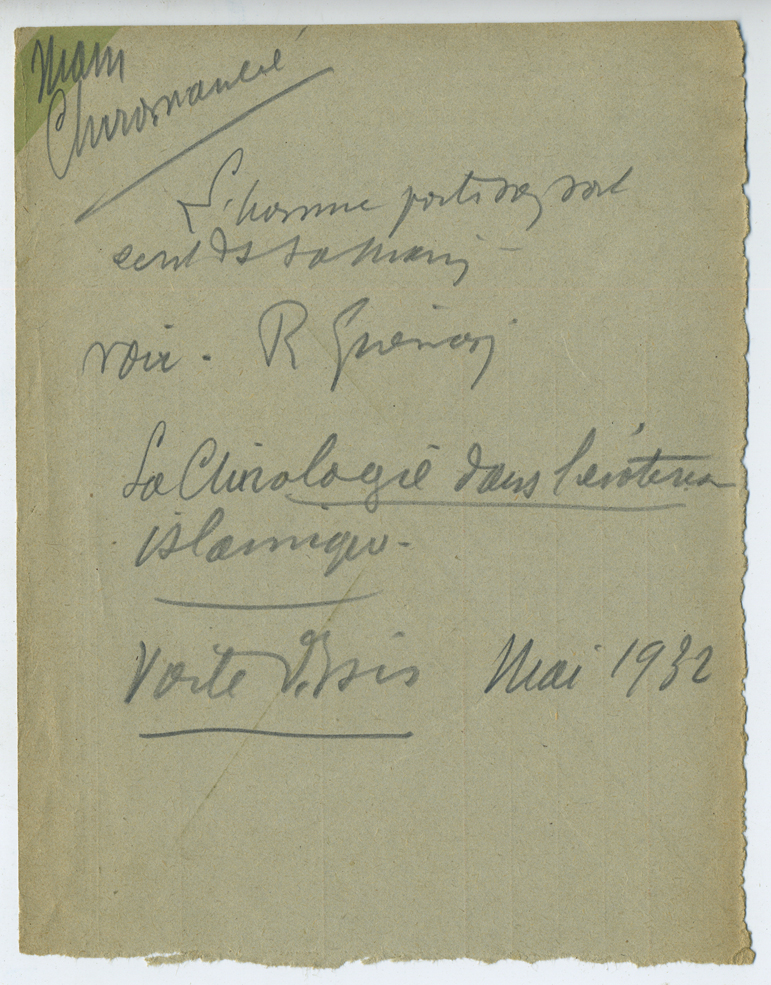 Main
Chiromancie
L'homme porte son sort
écrit ds sa main
voir. R Guénon
La Chirologie dans l'ésoterism
islamique.
Voile d'Isis Mai 1932